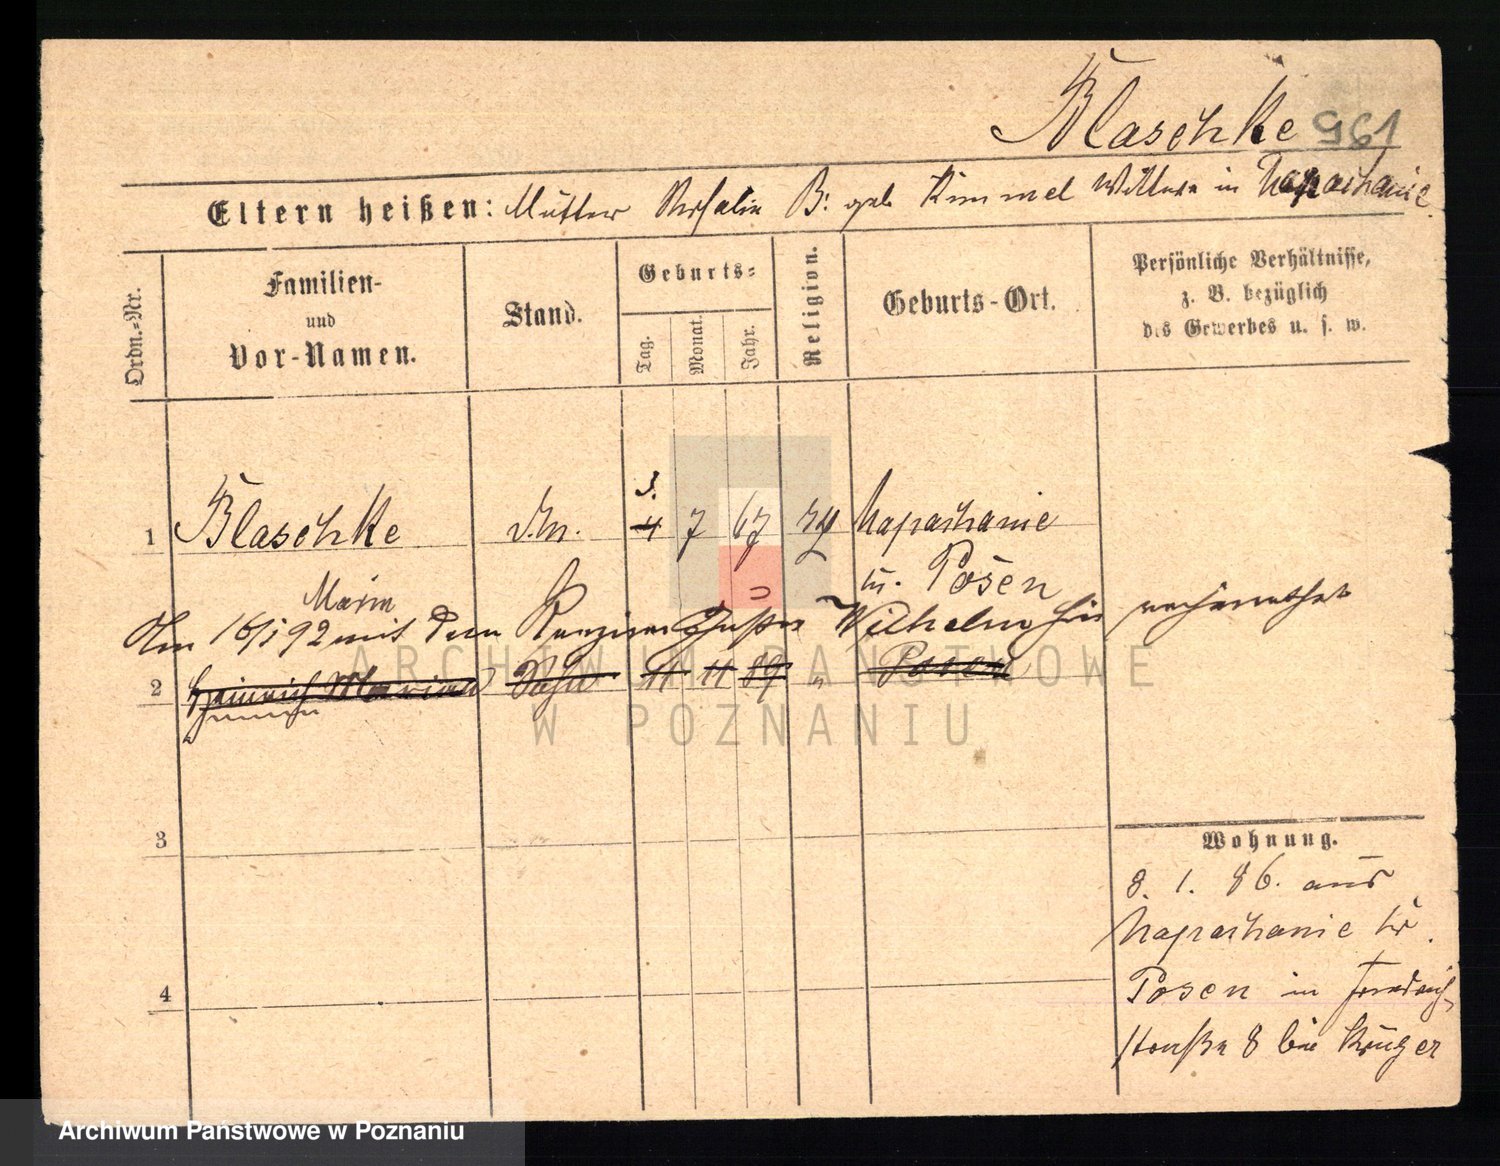 Blaschke 961
Eltern heißen: Mutter Rosalie B: geb Kimmel Wittwe in Naparhanie
Ordn.-Nr.
Familien-
und
Vor-Namen.
Stand.
Geburts-
Tag.
Monat.
Jahr.
Religion.
Geburts-Ort.
Persönliche Verhältnisse,
z. B. bezüglich
des Gewerbes u. s. w.
3.
1 Blaschke 4 7 67 Naparhanie
Posen
Maria
Am 16/1 92 mit dem Wilhelm
2 Heinrich Marian Sohn 11 11 89 " Posen
3
4
Wohnung.
8. 1. 86. aus
Naparhanie
Posen in Friedrich
straße 8 bei Krüger
ARCHIWUM PAŃSTWOWE
W POZNANIU
Archiwum Państwowe w Poznaniu